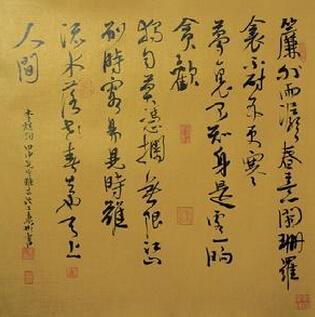 簾外雨潺潺春意闌珊羅
衾不耐五更寒
夢裏不知身是客一晌
貪歡
獨自莫憑欄無限江山
別時容易見時難
流水落花春去也天上
人間
李煜詞